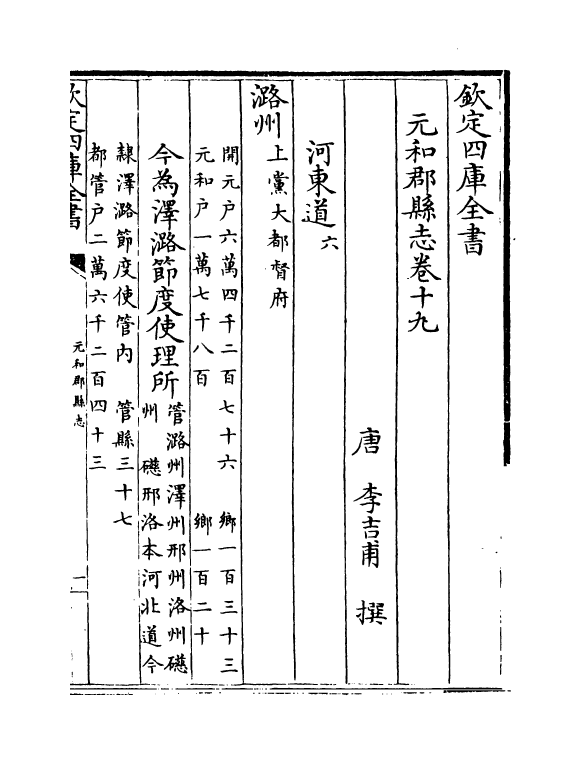 欽定四庫全書
元和郡縣志卷十九
唐 李吉甫 撰
河東道六
潞州上黨大都督府
開元户六萬四千二百七十六 鄉一百三十三
元和户一萬七千八百 鄉一百二十
今為澤潞節度使理所管潞州澤州邢州洺州礠
州 礠邢洺本河北道今
隸澤潞節度使管内 管縣三十七
都管户二萬六千二百四十三
欽定四庫全書
元和郡縣志
一